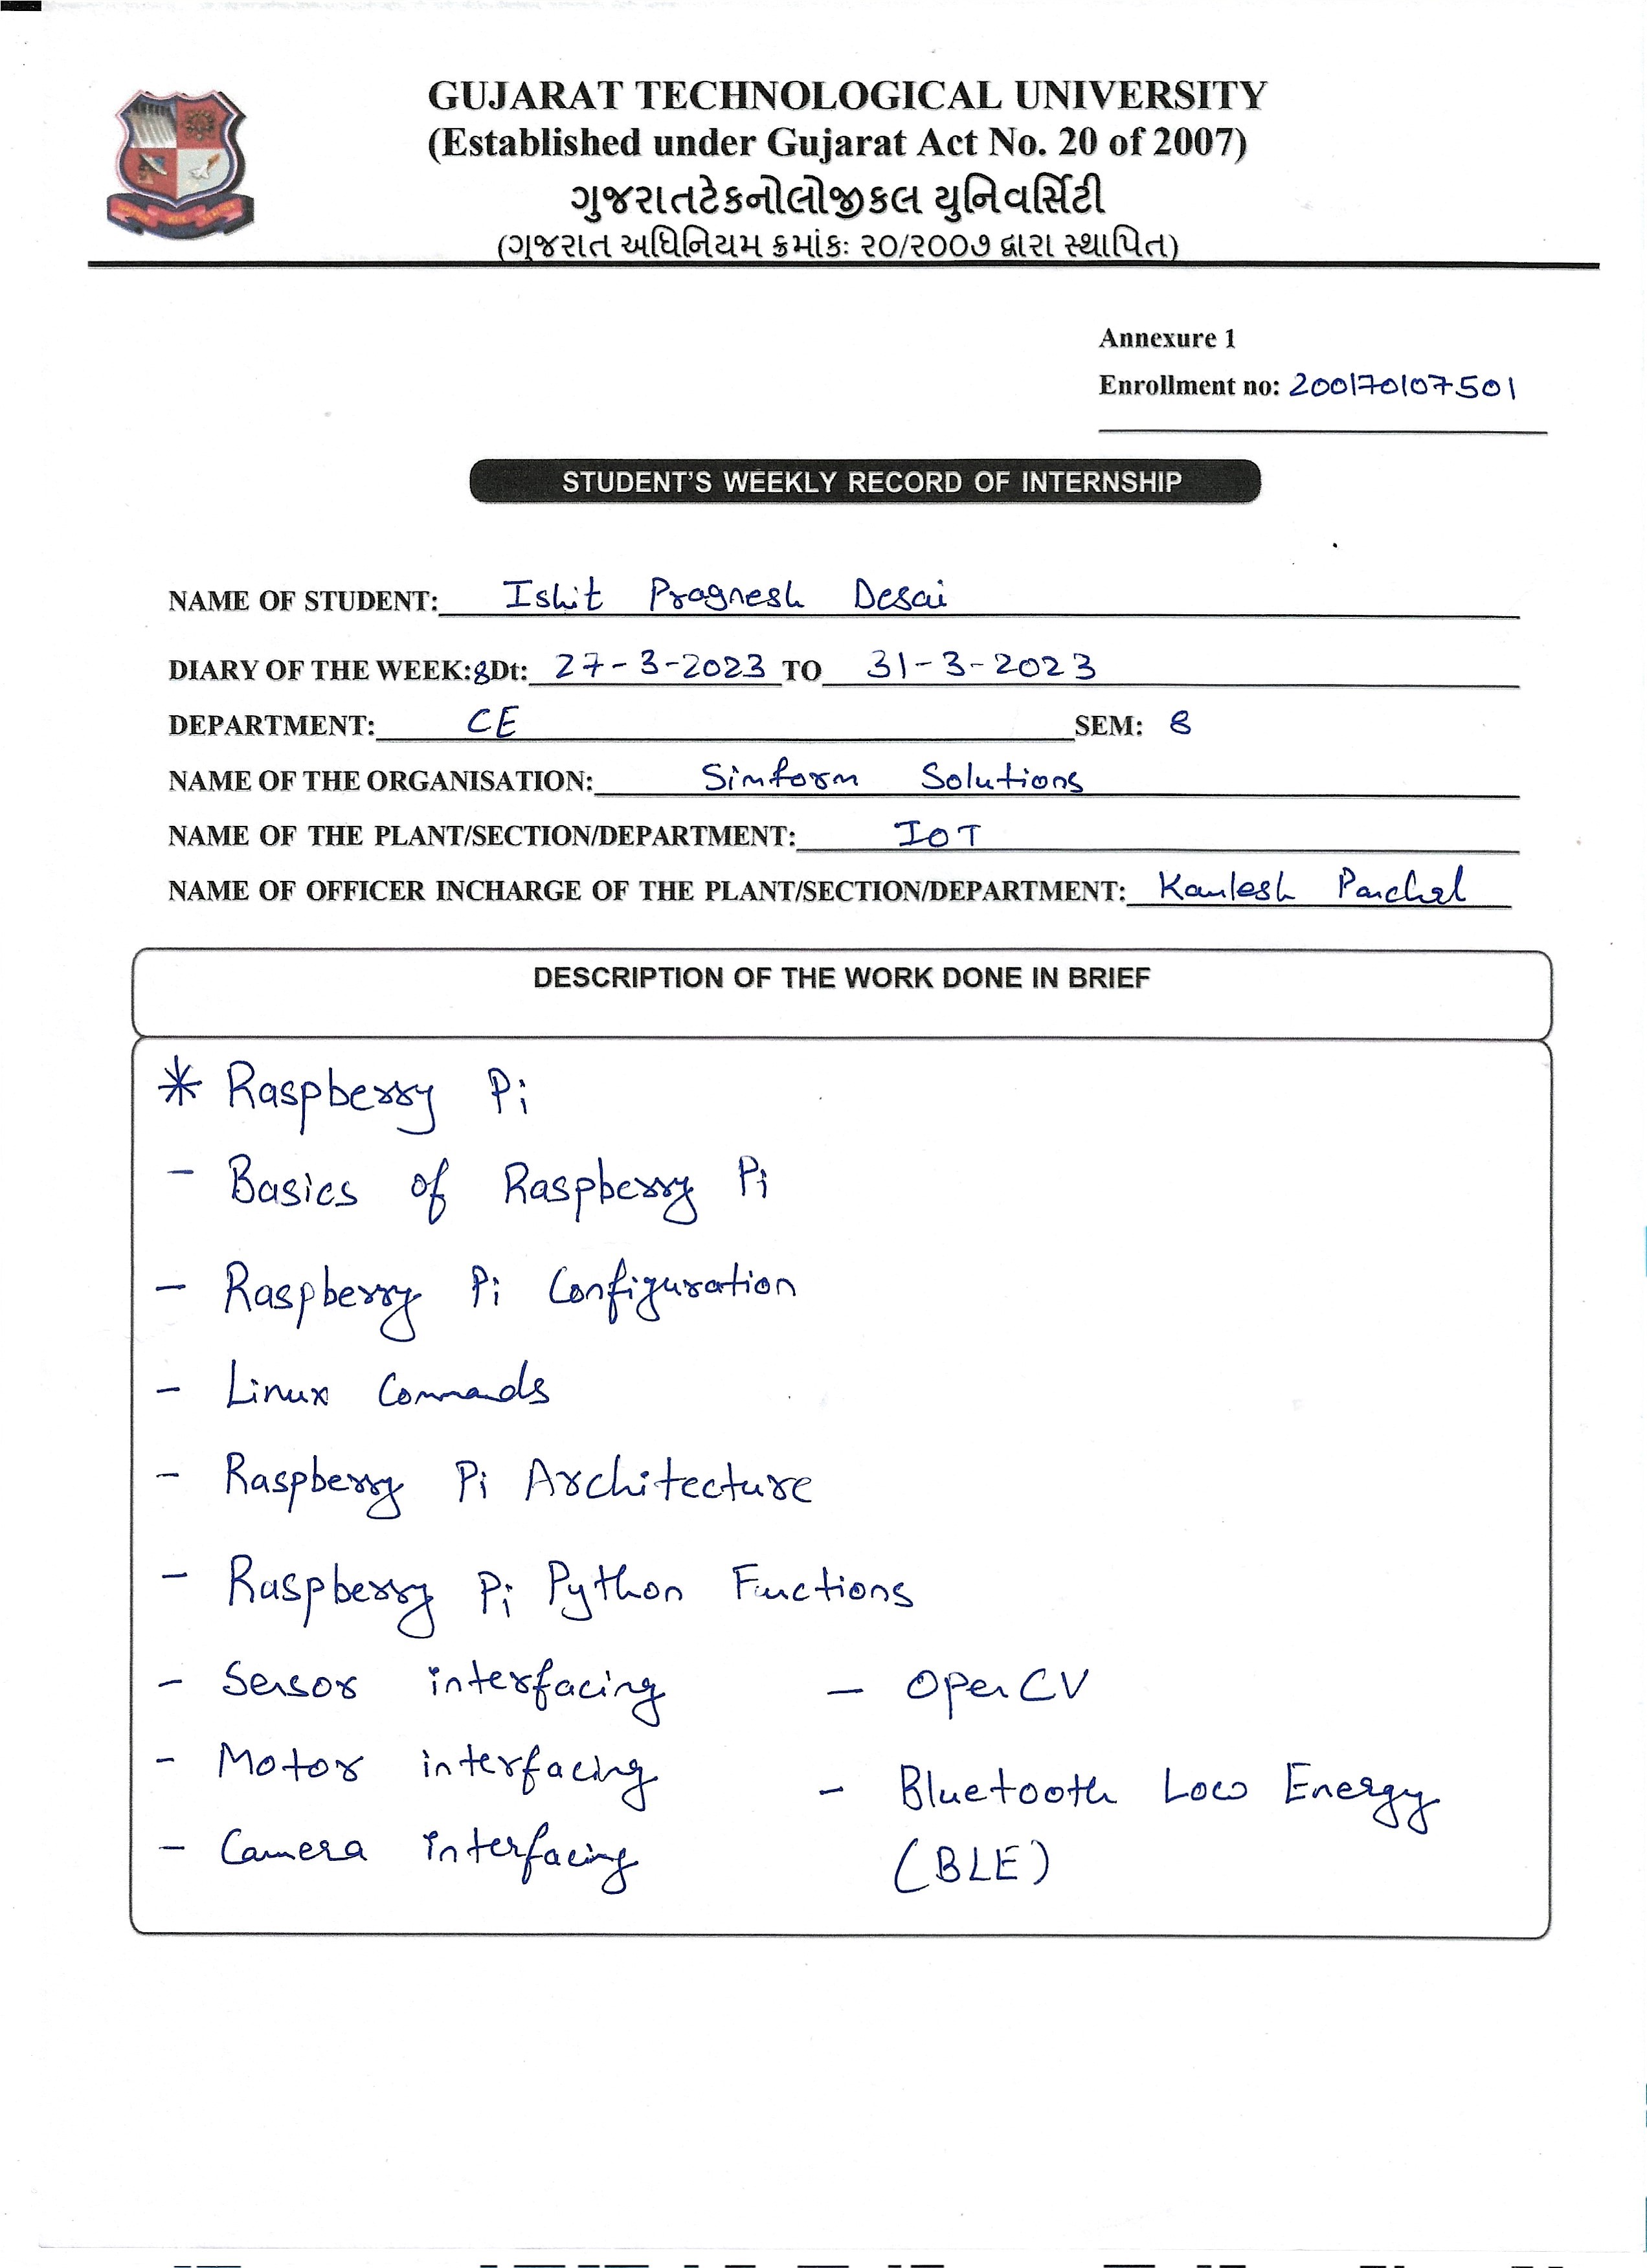 GUJARAT TECHNOLOGICAL UNIVERSITY
(Established under Gujarat Act No. 20 of 2007)
ગુજરાતટેકનોલોજીકલ યુનિવર્સિટી
(ગુજરાત અધિનિયમ ક્રમાંકઃ ૨૦/૨૦૦૭ દ્વારા સ્થાપિત)
Annexure 1
Enrollment no: 200170107501
STUDENT'S WEEKLY RECORD OF INTERNSHIP
NAME OF STUDENT: Ishit Pragnesh Desai
DIARY OF THE WEEK:8Dt: 27-3-2023 TO 31-3-2023
DEPARTMENT: CE SEM: 8
NAME OF THE ORGANISATION: Simform Solutions
NAME OF THE PLANT/SECTION/DEPARTMENT: IOT
NAME OF OFFICER INCHARGE OF THE PLANT/SECTION/DEPARTMENT: Kamlesh Panchal
DESCRIPTION OF THE WORK DONE IN BRIEF
* Raspberry Pi
- Basics of Raspberry Pi
- Raspberry Pi Configuration
- Linux Commads
- Raspberry Pi Architecture
- Raspberry Pi Python Fuctions
- Sensor interfacing
- Motor interfacing
- Camera interfacing
- OpenCV
- Bluetooth Low Energy
(BLE)